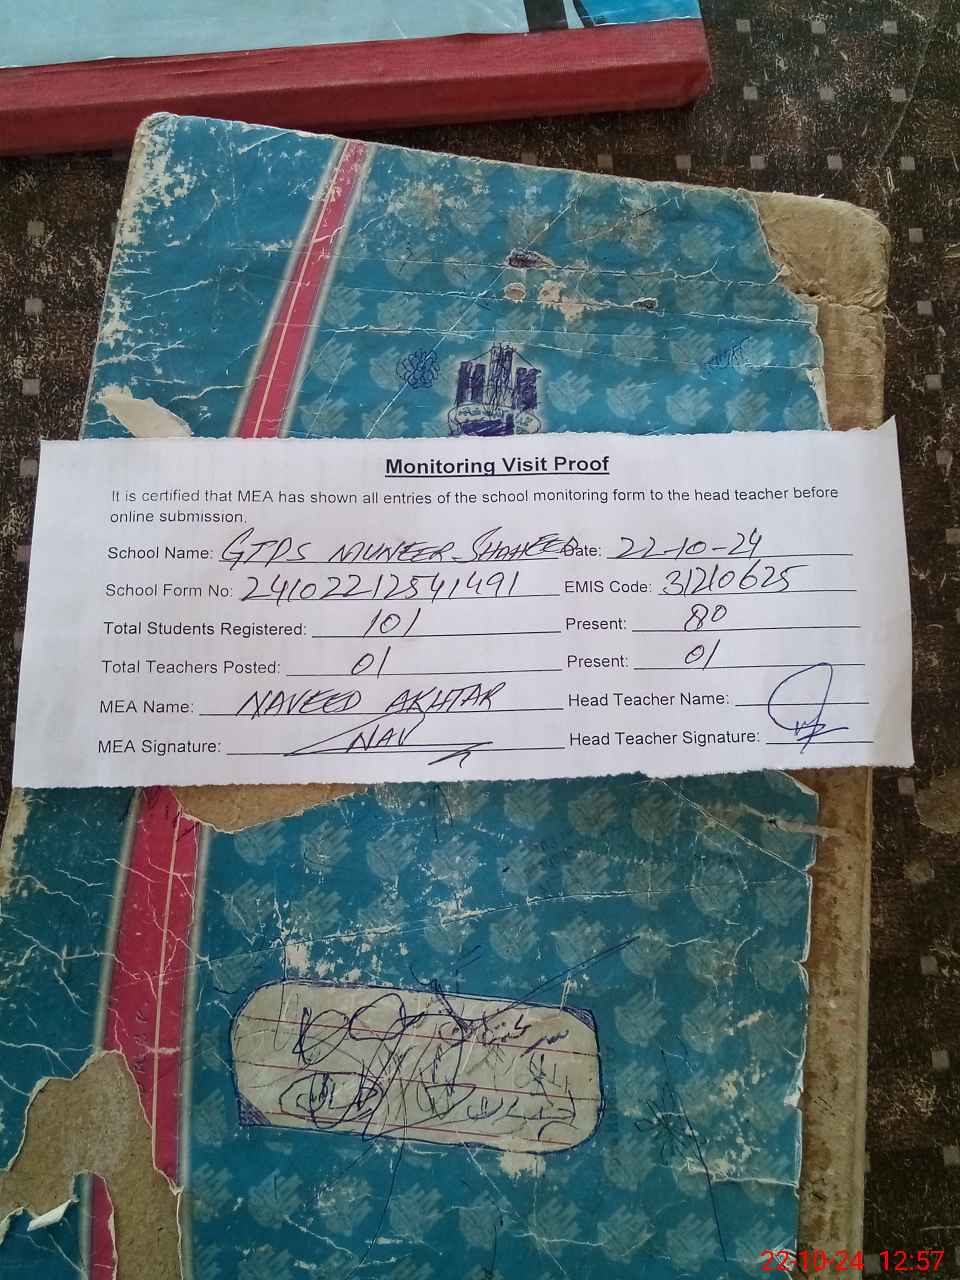 Monitoring Visit Proof
It is certified that MEA has shown all entries of the school monitoring form to the head teacher before
online submission.
School Name: GTPS MUNEER SHAHEED Date: 22-10-24
School Form No: 24102212541491 EMIS Code: 31210625
Total Students Registered: 101 Present: 80
Total Teachers Posted: 01 Present: 01
MEA Name: NAVEED AKHTAR Head Teacher Name:
MEA Signature: NAV Head Teacher Signature:
22-10-24 12:57